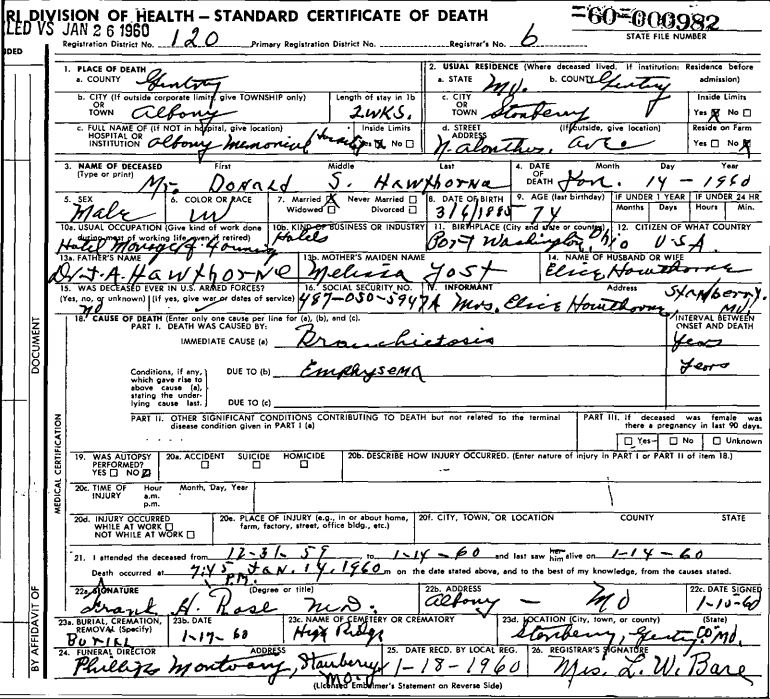 RI DIVISION OF HEALTH — STANDARD CERTIFICATE OF DEATH
=60-000982
LED VS JAN 26 1960
STATE FILE NUMBER
Registration District No. 120 Primary Registration District No. Registrar's No. 6
DED
1. PLACE OF DEATH
a. COUNTY Gentry
2. USUAL RESIDENCE (Where deceased lived. If institution: Residence before admission)
a. STATE Mo. b. COUNTY Gentry
b. CITY (If outside corporate limits, give TOWNSHIP only) OR TOWN Albany
Length of stay in 1b 2 WKS.
c. CITY OR TOWN Stanberry
Inside Limits Yes No
c. FULL NAME OF (If NOT in hospital, give location) HOSPITAL OR INSTITUTION Albany Memorial
Inside Limits Yes No
d. STREET ADDRESS (If outside, give location) N. Alanthus Ave
Reside on Farm Yes No
3. NAME OF DECEASED (Type or print) First Middle Last
Mr. Donald S. Hawthorne
4. DATE OF DEATH Month Day Year
Jan. 14 - 1960
5. SEX Male
6. COLOR OR RACE W
7. Married Never Married Widowed Divorced
8. DATE OF BIRTH 3/6/1885
9. AGE (last birthday) 74
IF UNDER 1 YEAR Months Days
IF UNDER 24 HR Hours Min.
10a. USUAL OCCUPATION (Give kind of work done during most of working life, even if retired)
Hotel Manager
10b. KIND OF BUSINESS OR INDUSTRY Hotels
11. BIRTHPLACE (City and state or country) Port Washington, Ohio
12. CITIZEN OF WHAT COUNTRY USA
13a. FATHER'S NAME Dr. J. A. Hawthorne
13b. MOTHER'S MAIDEN NAME Melissa Yost
14. NAME OF HUSBAND OR WIFE Elice Hawthorne
15. WAS DECEASED EVER IN U.S. ARMED FORCES? (Yes, no, or unknown) (If yes, give war or dates of service) no
16. SOCIAL SECURITY NO. 487-030-5947A
17. INFORMANT Address
Mrs. Elice Hawthorne, Stanberry, Mo.
18. CAUSE OF DEATH (Enter only one cause per line for (a), (b), and (c).
PART I. DEATH WAS CAUSED BY:
INTERVAL BETWEEN ONSET AND DEATH
IMMEDIATE CAUSE (a) Bronchietosis Years
Conditions, if any, which gave rise to above cause (a), stating the underlying cause last.
DUE TO (b) Emphysema Years
DUE TO (c)
PART II. OTHER SIGNIFICANT CONDITIONS CONTRIBUTING TO DEATH but not related to the terminal disease condition given in PART I (a)
PART III. If deceased was female was there a pregnancy in last 90 days.
Yes No Unknown
19. WAS AUTOPSY PERFORMED? YES NO
20a. ACCIDENT SUICIDE HOMICIDE
20b. DESCRIBE HOW INJURY OCCURRED. (Enter nature of injury in PART I or PART II of item 18.)
20c. TIME OF INJURY Hour a.m. p.m. Month, Day, Year
20d. INJURY OCCURRED WHILE AT WORK NOT WHILE AT WORK
20e. PLACE OF INJURY (e.g., in or about home, farm, factory, street, office bldg., etc.)
20f. CITY, TOWN, OR LOCATION COUNTY STATE
21. I attended the deceased from 12-31-59 to 1-14-60 and last saw her him alive on 1-14-60
Death occurred at 7:45 P.M. Jan. 14, 1960 m on the date stated above, and to the best of my knowledge, from the causes stated.
22a. SIGNATURE (Degree or title) Frank H. Rose M.D.
22b. ADDRESS Albany - MO
22c. DATE SIGNED 1-15-60
23a. BURIAL, CREMATION, REMOVAL (Specify) Burial
23b. DATE 1-17-60
23c. NAME OF CEMETERY OR CREMATORY High Ridge
23d. LOCATION (City, town, or county) (State) Stanberry, Gentry Co Mo.
24. FUNERAL DIRECTOR ADDRESS
Phillips Stanberry, Mo.
25. DATE RECD. BY LOCAL REG. 1-18-1960
26. REGISTRAR'S SIGNATURE Mrs. L. W. Bare
(Licensed Embalmer's Statement on Reverse Side)
DOCUMENT
MEDICAL CERTIFICATION
BY AFFIDAVIT OF